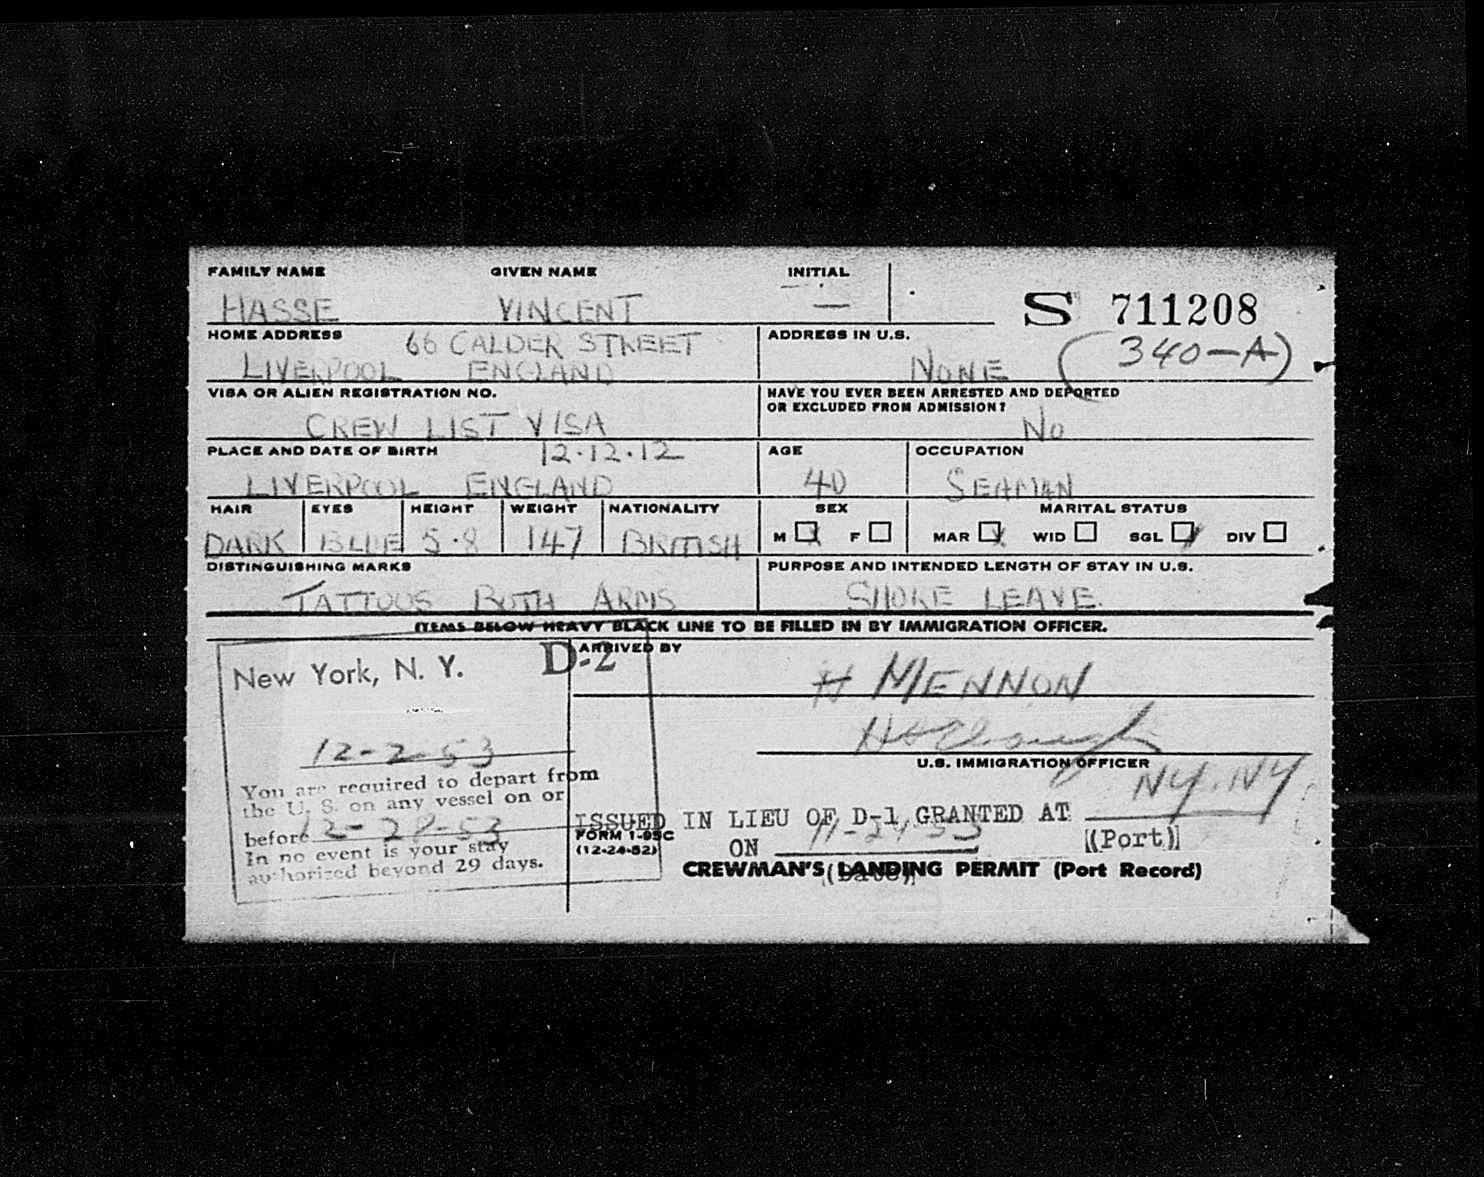 FAMILY NAME GIVEN NAME INITIAL
HASSE VINCENT — S 711208
HOME ADDRESS 66 CALDER STREET ADDRESS IN U.S. (340-A)
LIVERPOOL ENGLAND NONE
VISA OR ALIEN REGISTRATION NO. HAVE YOU EVER BEEN ARRESTED AND DEPORTED
OR EXCLUDED FROM ADMISSION?
CREW LIST VISA No
PLACE AND DATE OF BIRTH 12.12.12 AGE OCCUPATION
LIVERPOOL ENGLAND 40 SEAMAN
HAIR EYES HEIGHT WEIGHT NATIONALITY SEX MARITAL STATUS
DARK BLUE 5.8 147 BRITISH M F MAR WID SGL DIV
DISTINGUISHING MARKS PURPOSE AND INTENDED LENGTH OF STAY IN U.S.
TATTOOS BOTH ARMS SHORE LEAVE
ITEMS BELOW HEAVY BLACK LINE TO BE FILLED IN BY IMMIGRATION OFFICER.
New York, N. Y. D-2 ARRIVED BY
H MENNON
12-2-53
U.S. IMMIGRATION OFFICER
You are required to depart from
the U. S. on any vessel on or
before 12-29-53
In no event is your stay
authorized beyond 29 days.
NY. NY
ISSUED IN LIEU OF D-1 GRANTED AT
FORM I-95C
(12-24-52) ON (Port)
CREWMAN'S LANDING PERMIT (Port Record)
(Date)